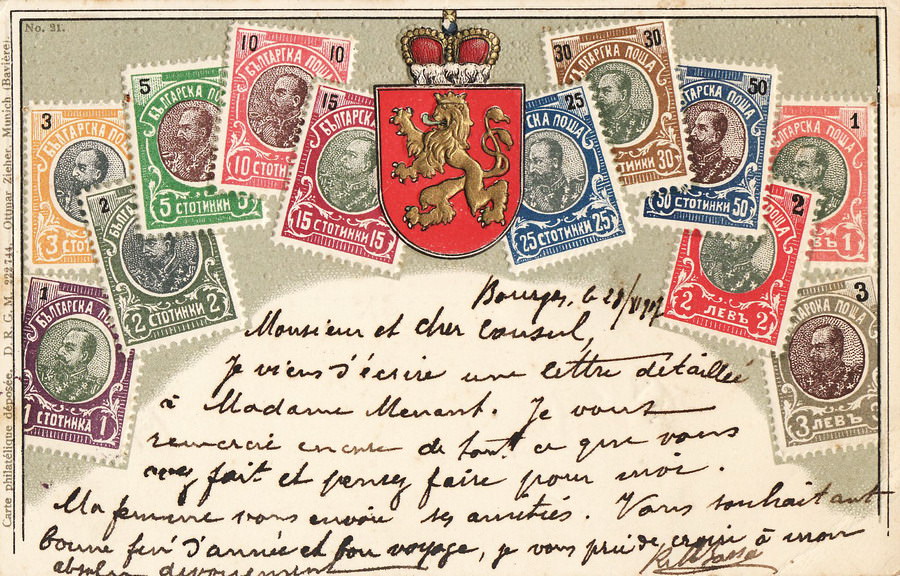 No. 21.
Carte philatélique déposée. D. R. G. M. 222744. Ottmar Zieher, Munich (Bavière).
3
БЪЛГАРСКА ПО
3 СТО
5
БЪЛГАРСКА ПО
5 СТОТИНКИ 5
10 10
БЪЛГАРСКА ПОЩА
10 СТОТИ
15
БЪЛГАРСКА
15 СТОТИНКИ 15
25
СКА ПОЩА
25 СТОТИНКИ 25
30 30
ЪЛГАРСКА ПОЩА
ТИНКИ 30
50
РСКА ПОЩА
50 СТОТИНКИ 50
1
БЪЛГАРСКА ПОЩА
ЛЕВЪ 1
2
БЪЛГА
2 СТОТИНКИ 2
2
ПОЩА
2 ЛЕВЪ 2
1
БЪЛГАРСКА ПОЩА
1 СТОТИНКА 1
3
ГАРСКА ПОЩА
3 ЛЕВЪ 3
Bourges, le 28/ 1907
Monsieur et cher Consul,
Je viens d'écrire une lettre détaillée
à Madame Menant. Je vous
remercie encore de tout ce que vous
avez fait et pensez faire pour moi.
Ma femme vous envoie ses amitiés. Vous souhaitant
bonne fin d'année et bon voyage, je vous prie de croire à mon
absolu dévouement